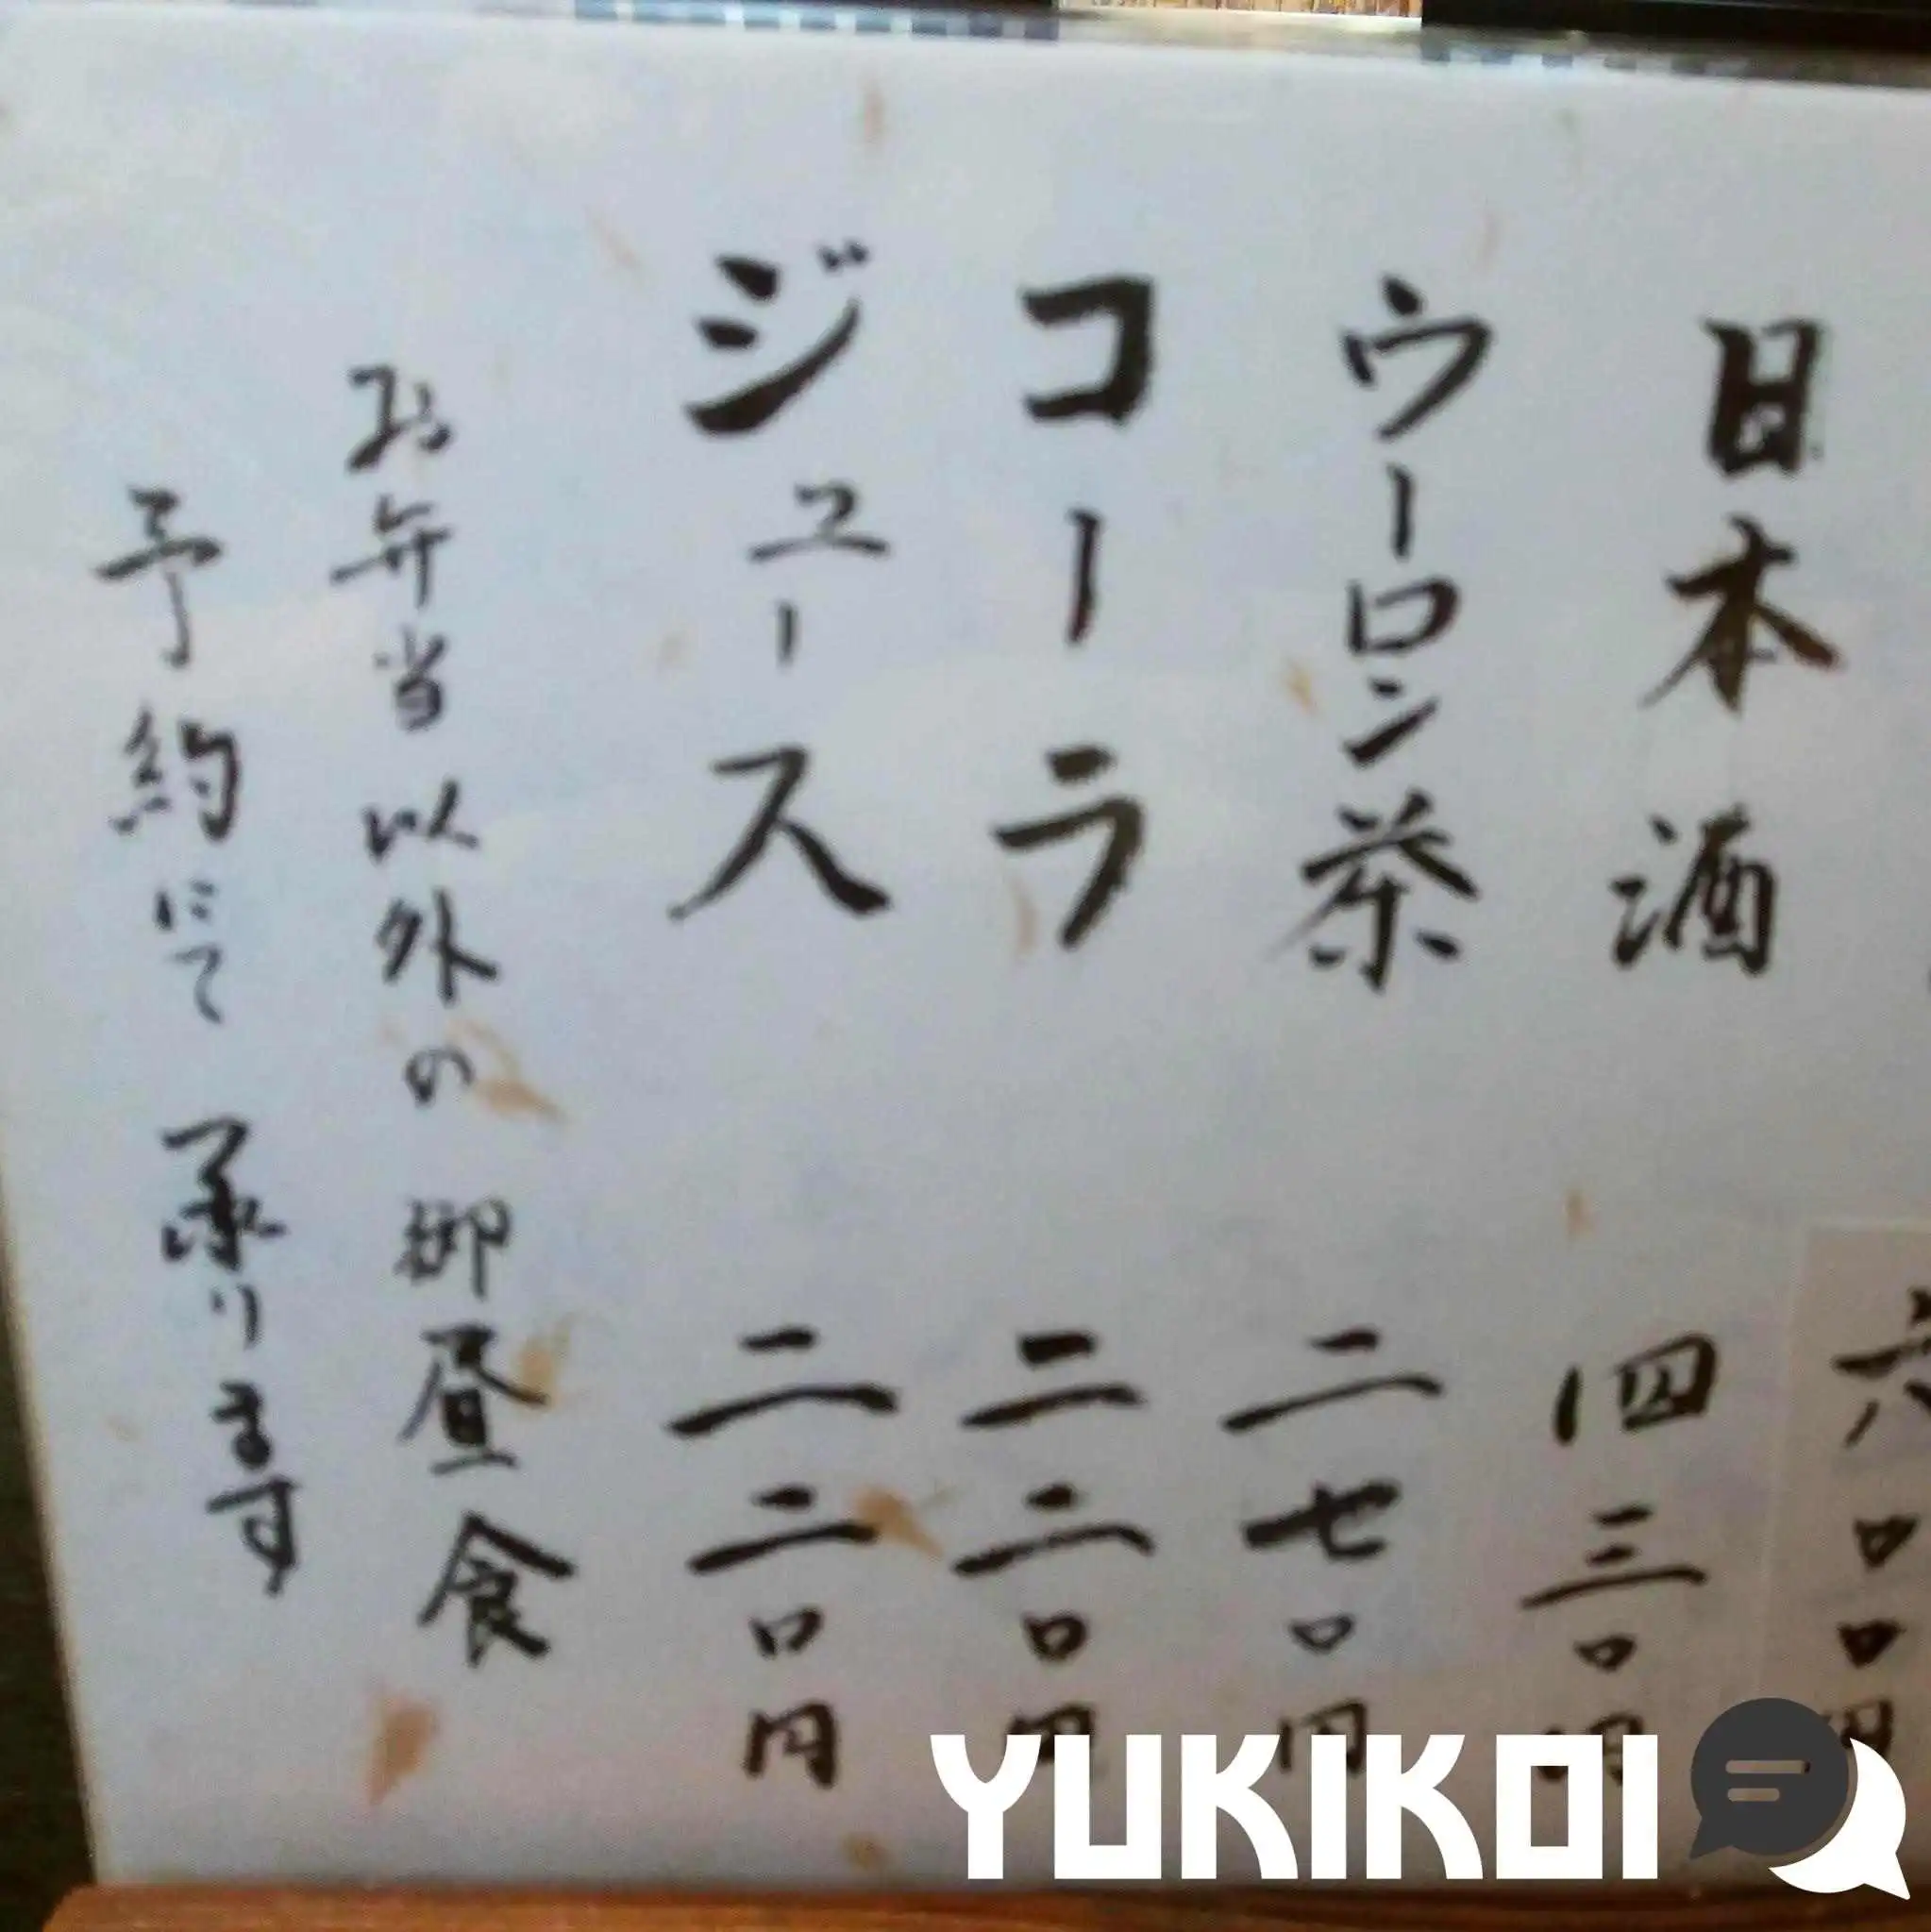 六〇〇円
日本酒 四三〇円
ウーロン茶 二七〇円
コーラ 二二〇円
ジュース 二二〇円
お弁当以外の御昼食
予約にて承ります
YUKIKOI